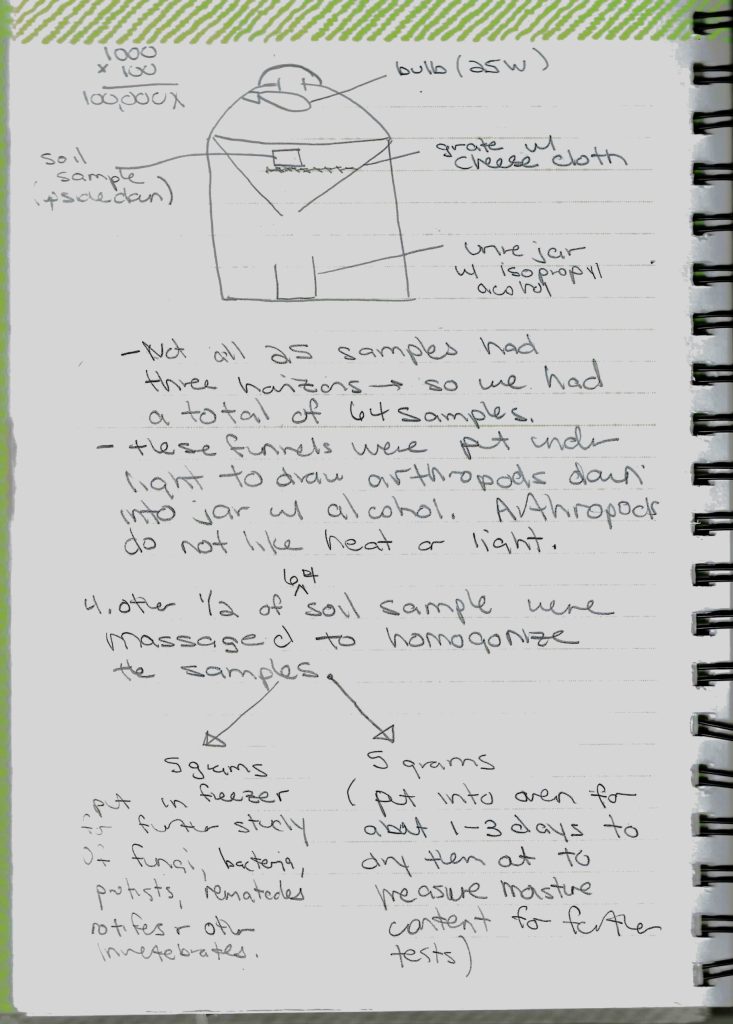 1000
× 100
100,000X
bulb (25W)
soil
sample
(upside down)
grate w/
cheese cloth
urine jar
w/ isopropyl
acohol
- Not all 25 samples had
three horizons → so we had
a total of 64 samples.
- these funnels were put under
light to draw arthropods down
into jar w/ alcohol. Arthropods
do not like heat or light.
64
4. other 1/2 of ^ soil sample were
massaged to homogonize
the samples.
5 grams
put in freezer
for further study
of fungi, bacteria,
protists, nematodes
rotifes r other
invertebrates.
5 grams
(put into oven for
about 1-3 days to
dry them ot to
measure moisture
content for further
tests)